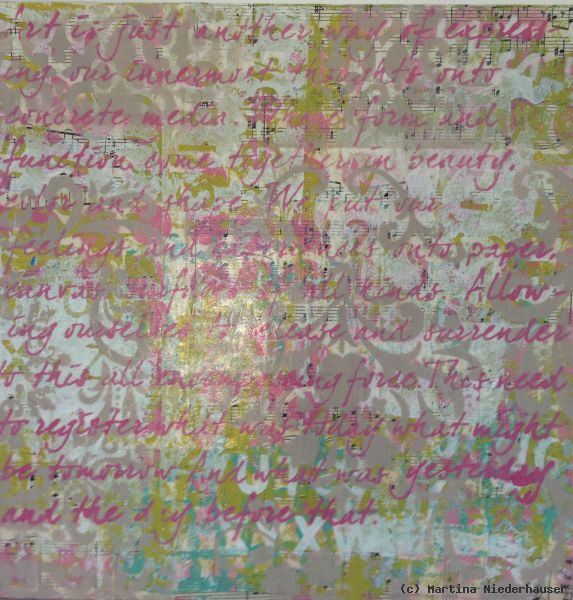 Art is just another way of express-
ing our innermost thoughts onto
concrete media. Where form and
function come together in beauty,
and shape. We put our
feelings and onto paper,
canvas, surfaces of all kinds. Allow-
ing ourselves to and surrender
to this all encompassing force. This need
to register what was today what might
be tomorrow And what was yesterday
and the day before that.
(c) Martina Niederhauser